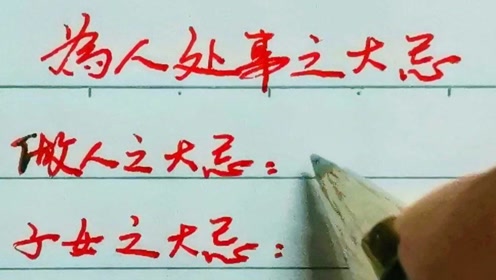 為人处事之大忌
做人之大忌：
子女之大忌：